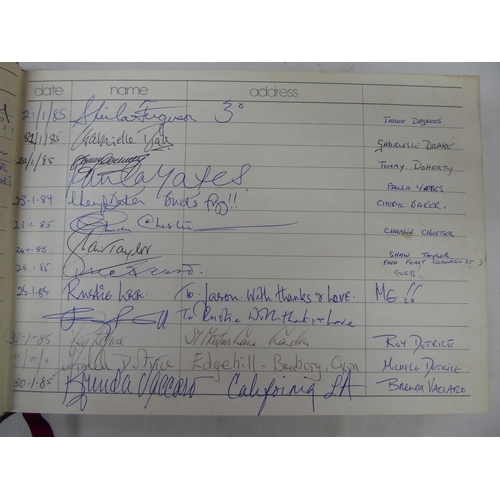 date name address
21/1/85 Sheila Ferguson 3° Three Degrees
22/1/85 Gabrielle Drake Gabrielle Drake
22/1/85 Tommy Doherty
Paula Yates. Paula Yates
23-1-84 Cheryl Baker Bucks Fizz!! Cheryl Baker.
23.1.85 Charlie Chester Charlie Chester
24.1.85 Shaw Taylor Shaw Taylor
24.1.85 Fred Feast
25.1.85 Rustie Lee. To Jason. With thanks & love. ME!!
To Rustie With thanks & love
Roy Dotrice Roy Dotrice
Edgehill - Banbury, Oxon Michele Dotrice
30-1-85 Brenda Vaccaro California LA Brenda Vaccaro